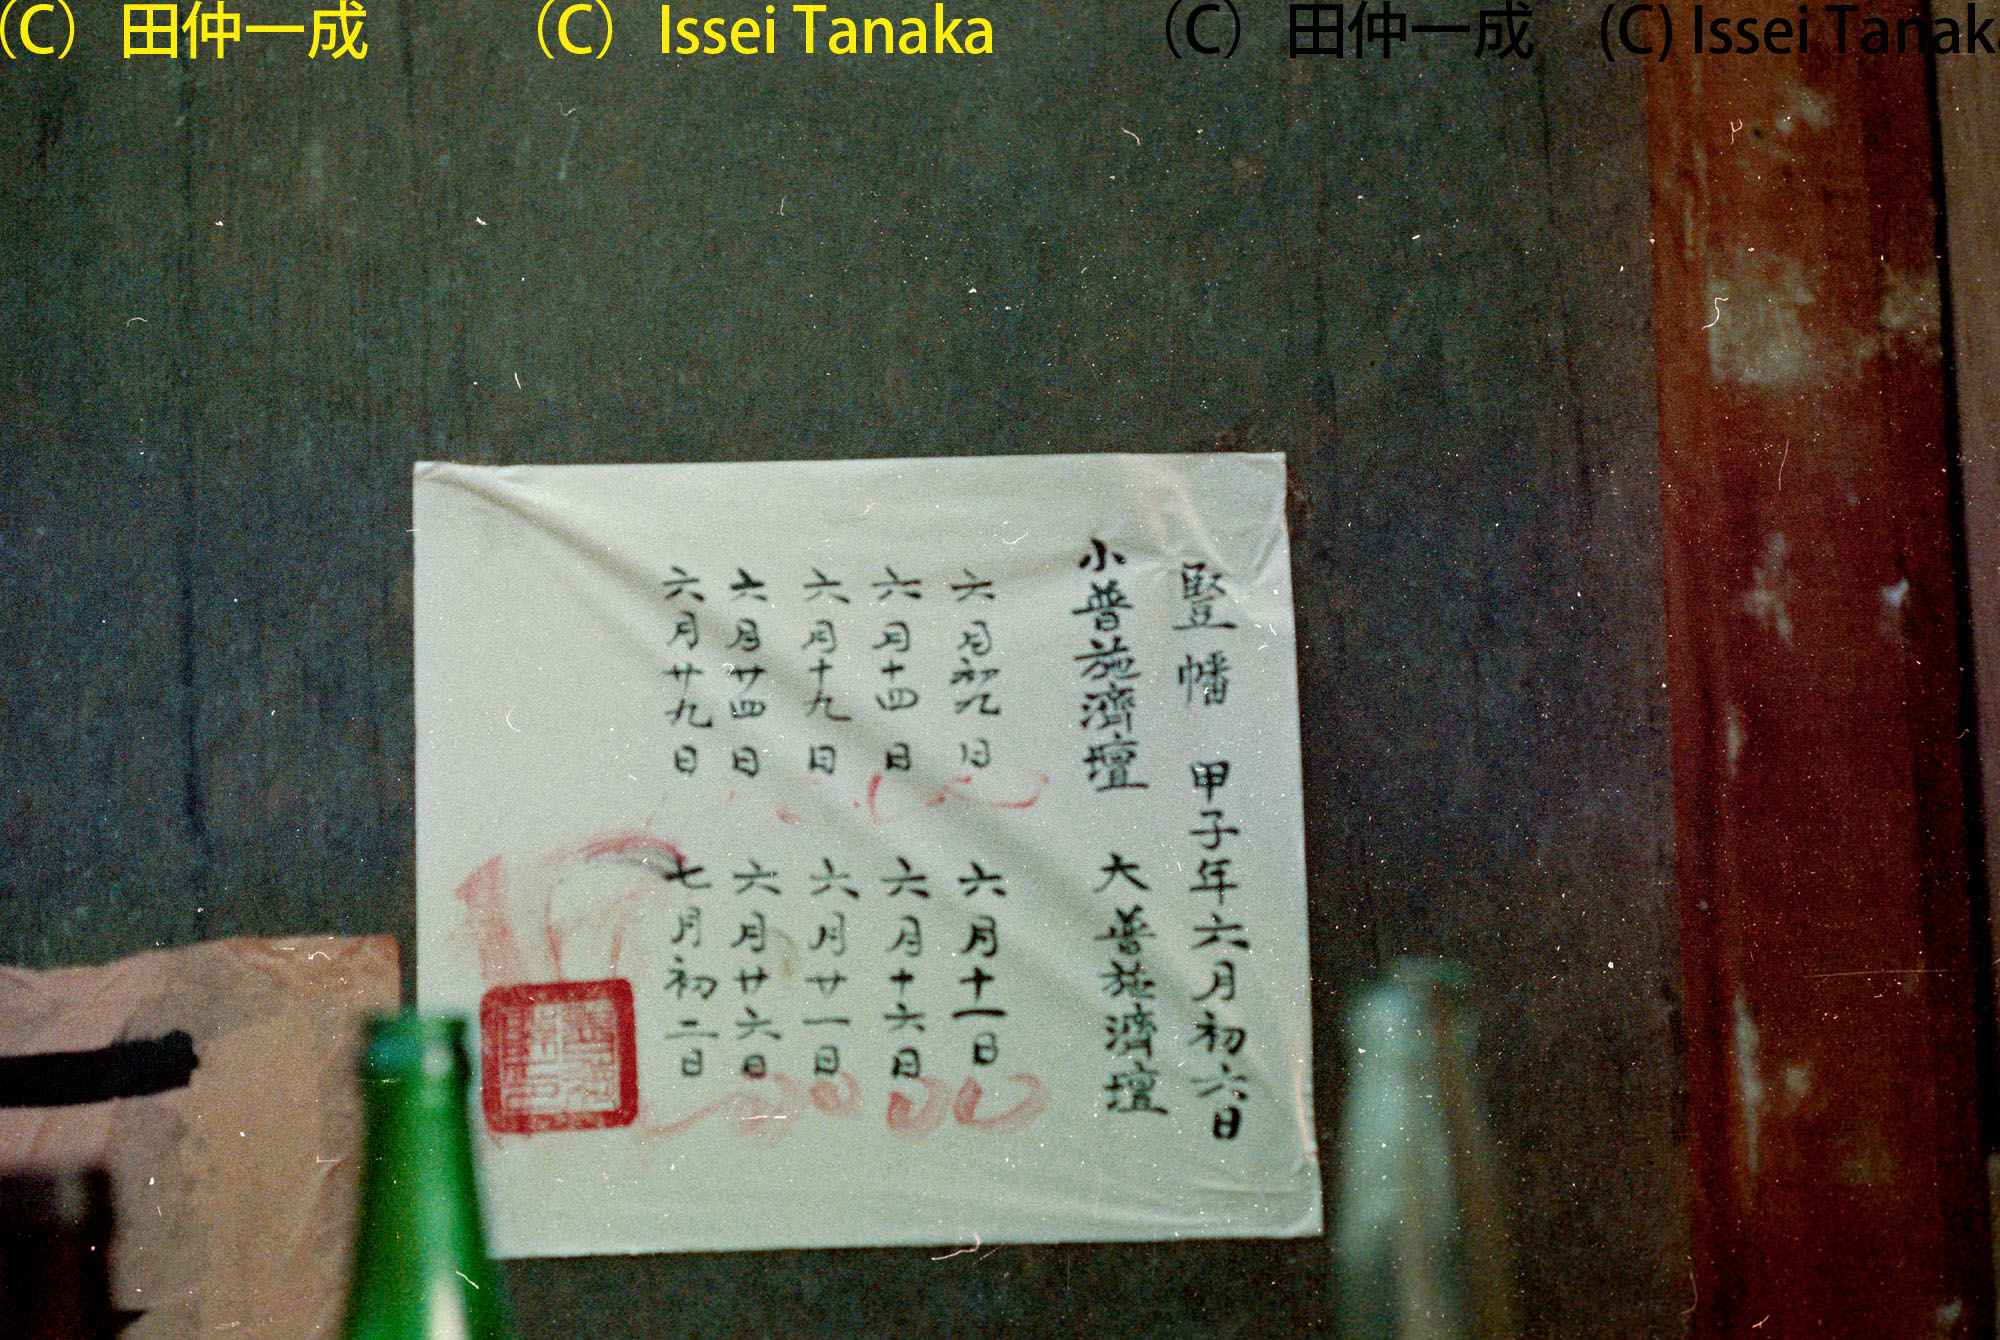 （C）田仲一成　（C）Issei Tanaka　（C）田仲一成　(C) Issei Tanaka
豎幡　甲子年六月初六日
小普施濟壇　大普施濟壇
六月初九日　六月十一日
六月十四日　六月十六日
六月十九日　六月廿一日
六月廿四日　六月廿六日
六月廿九日　七月初二日